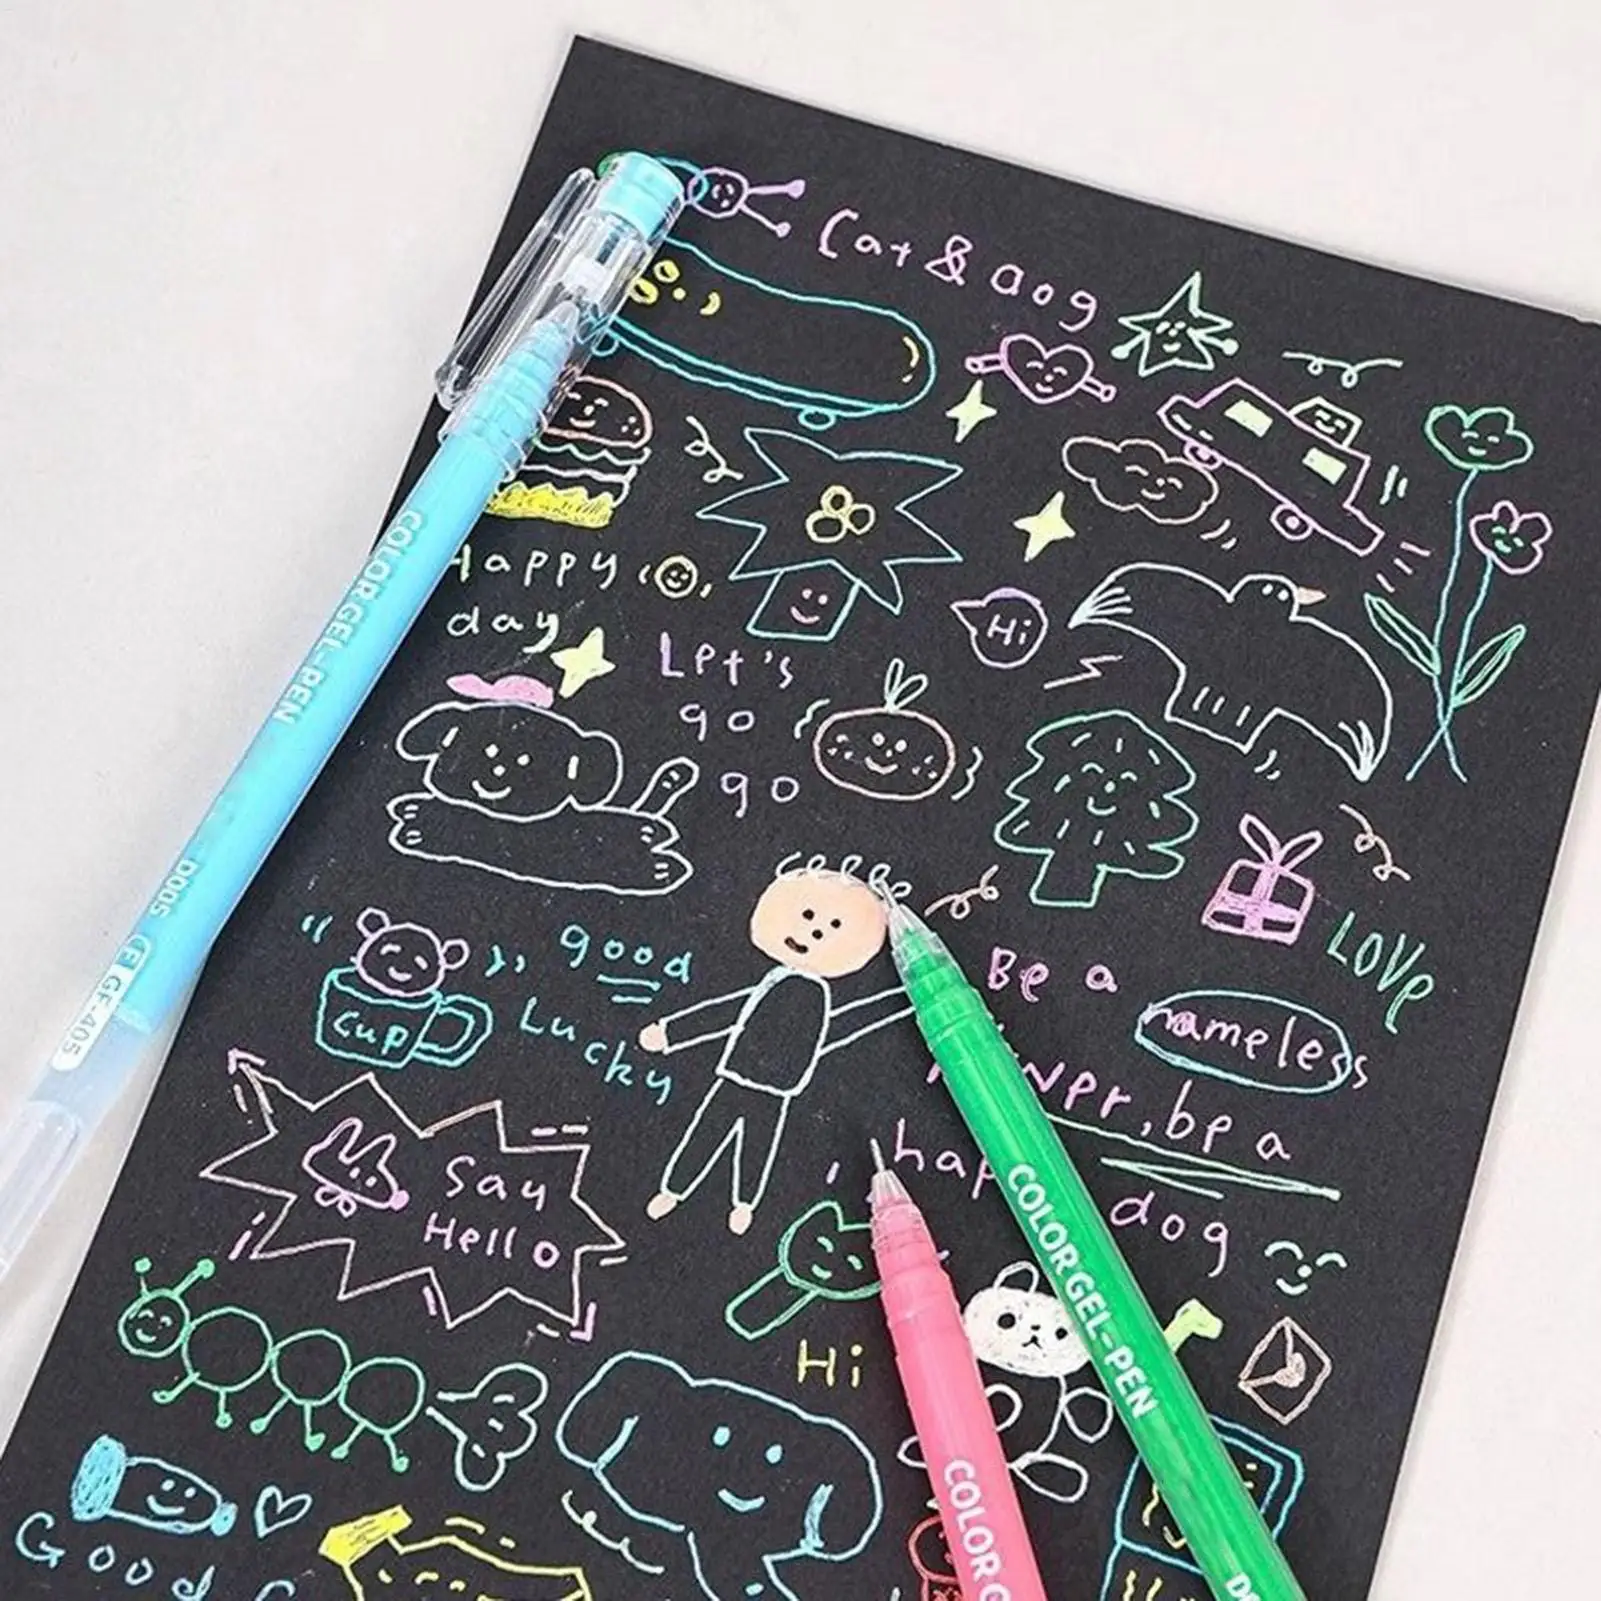 Cat & dog
Happy
day
Let's
go
go
Hi
LOVE
good
Lucky
cup
Be a
nameless
be a
dog
Say
Hello
Hi
Good
COLOR GEL-PEN
D005
GF-405
COLOR GEL-PEN
COLOR